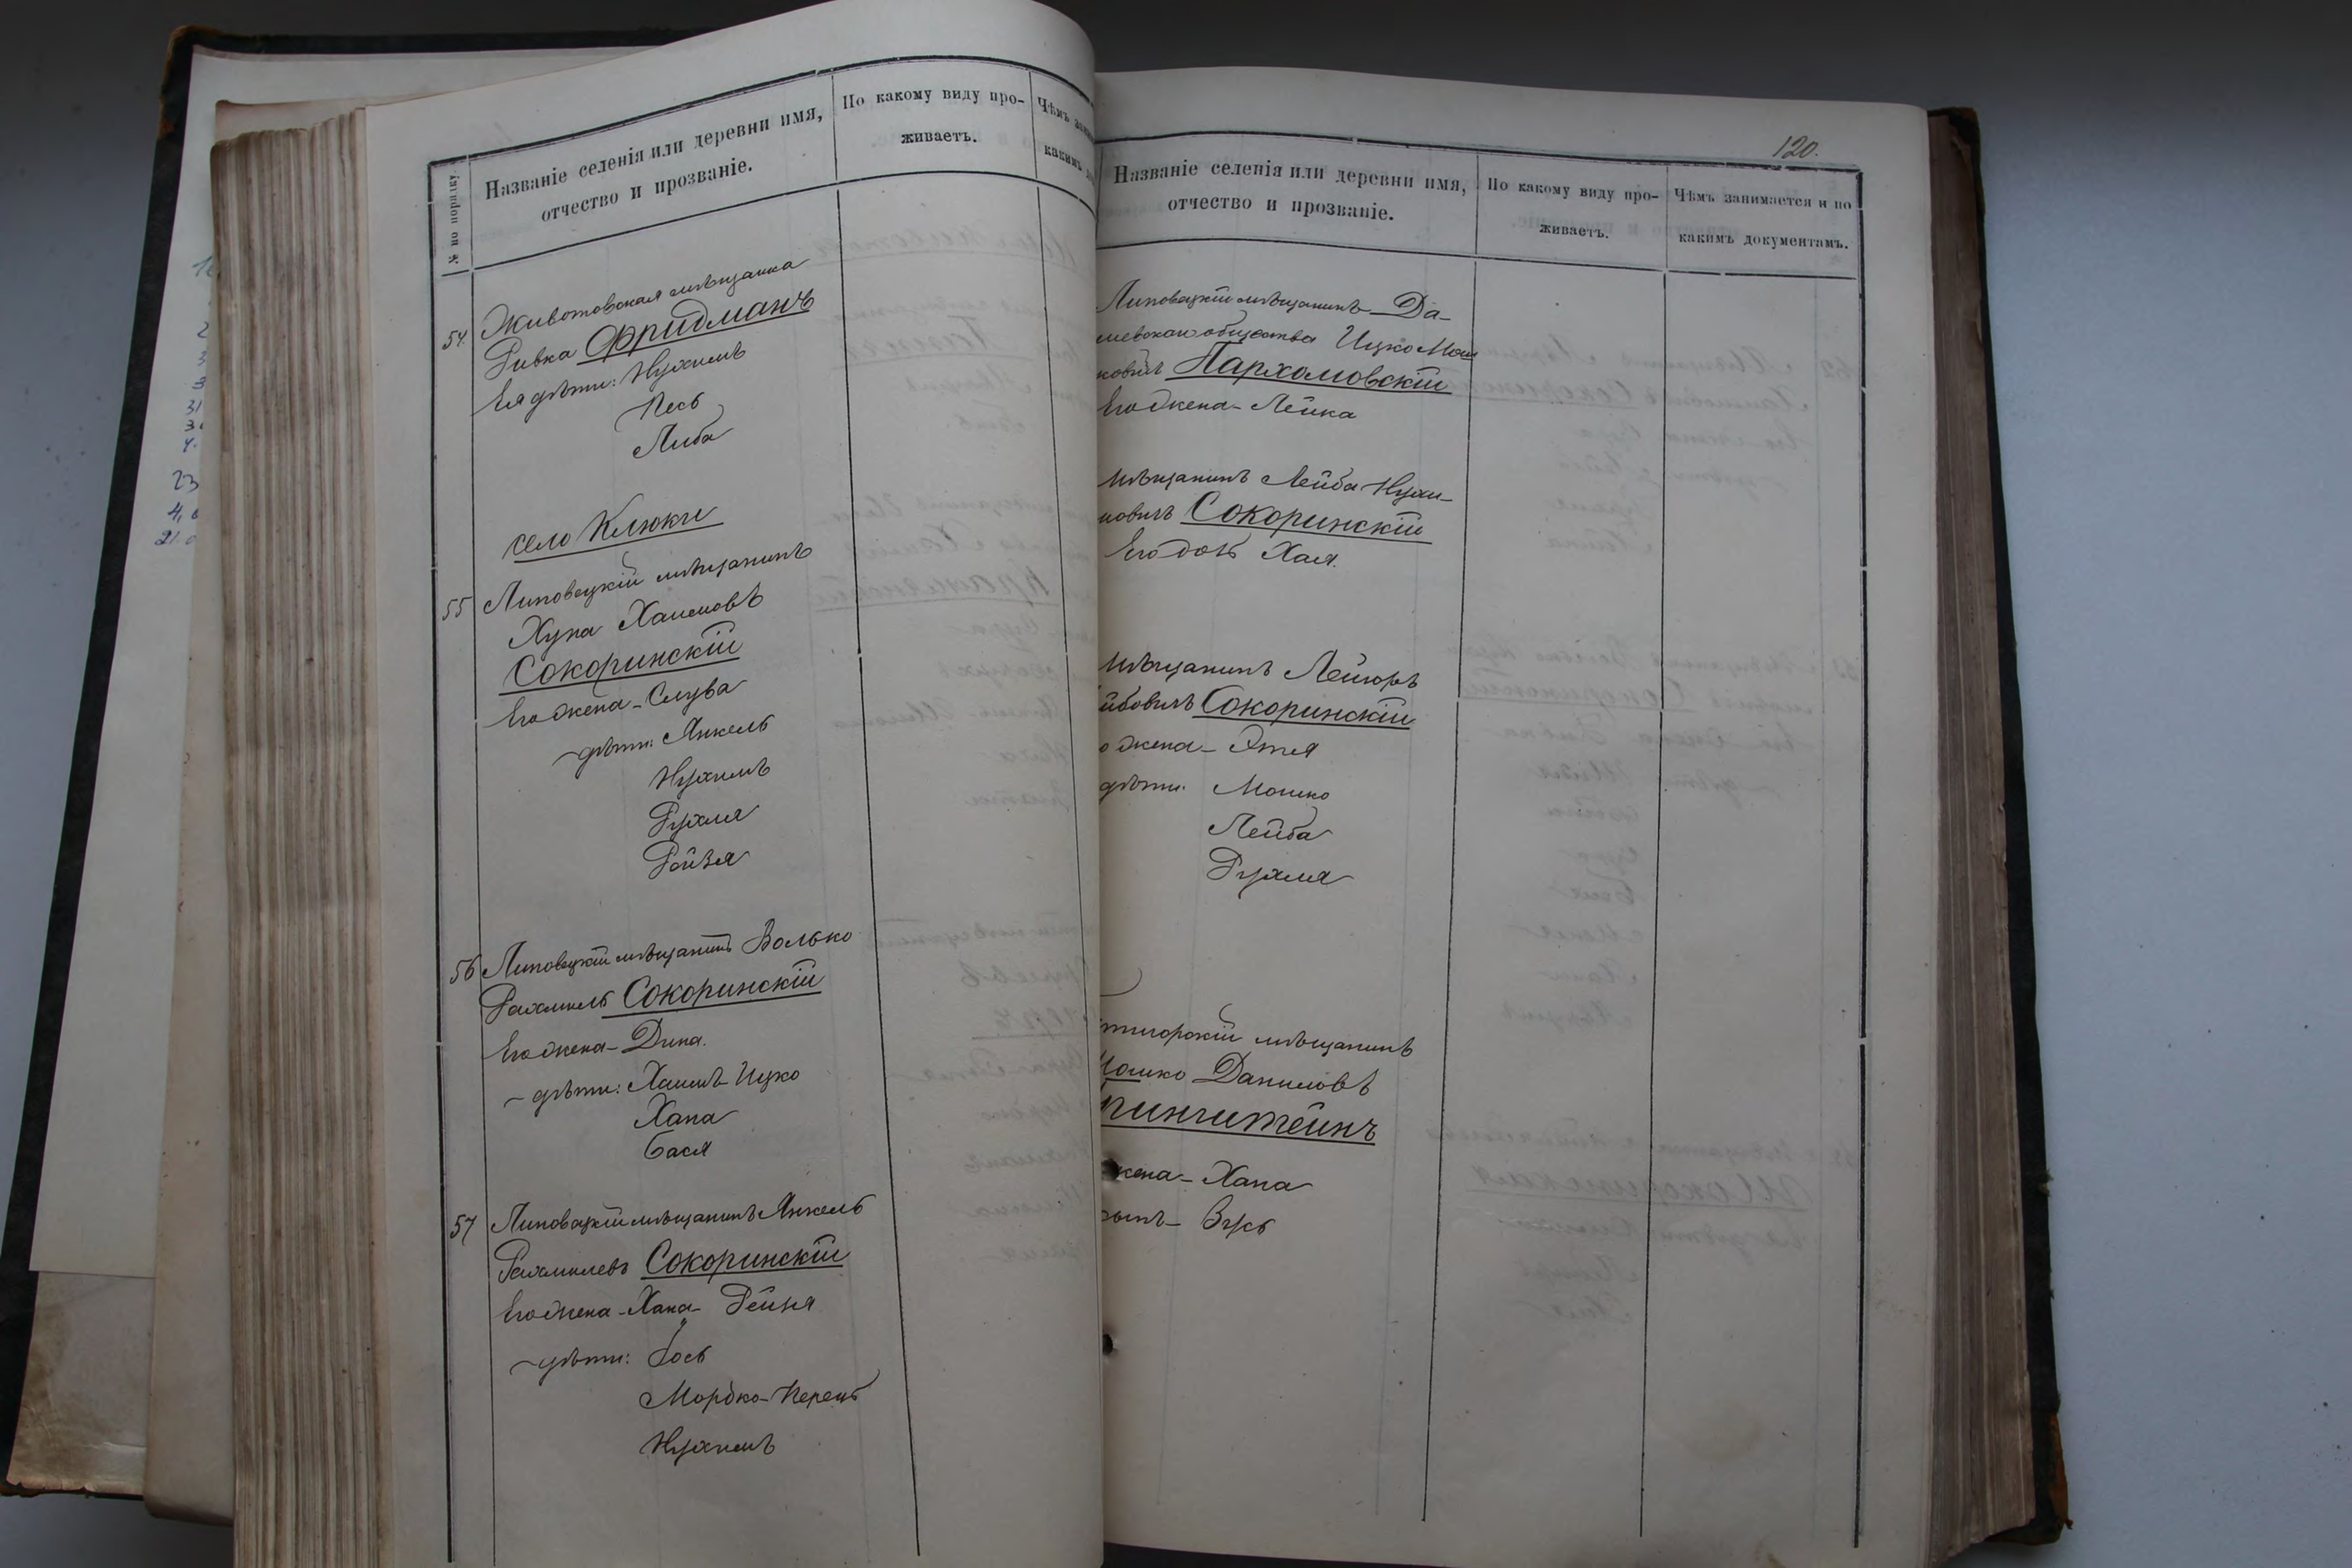 № по порядку.
Названіе селенія или деревни имя,
отчество и прозваніе.
По какому виду про-
живаетъ.
Чѣмъ
какимъ
54. Животовская мѣщанка
Ривка Фридманъ
Ея дѣти: Нухимъ
Песь
Либа
село Клюки
55 Липовецкій мѣщанинъ
Хуна Хаимовъ
Сокоринскій
Его жена - Слува
дѣти: Янкель
Нухимъ
Рухля
Ройзя
56 Липовецкій мѣщанинъ Волько
Рахмиль Сокоринскій
Его жена - Дина.
дѣти: Хаимъ-Ицко
Хана
Бася
57 Липовецкій мѣщанинъ Янкель
Рахмилевъ Сокоринскій
Его жена - Хана - Рейзя
дѣти: Іось
Мордко-Перець
Нухимъ
120.
Названіе селенія или деревни имя,
отчество и прозваніе.
По какому виду про-
живаетъ.
Чѣмъ занимается и по
какимъ документамъ.
Липовецкій мѣщанинъ Да-
шевскаго общества Ицко Мош
ковичъ Пархомовскій
Его жена - Лейка
Мѣщанинъ Лейба Нухи-
мовичъ Сокоринскій
Его дочь Хая.
Мѣщанинъ Лейзоръ
йбовичъ Сокоринскій
о жена - Этля
дѣти: Мошко
Лейба
Рухля
тигорскій мѣщанинъ
Мошко Даниловъ
рингштейнъ
жена - Хана
сынъ - Зусь